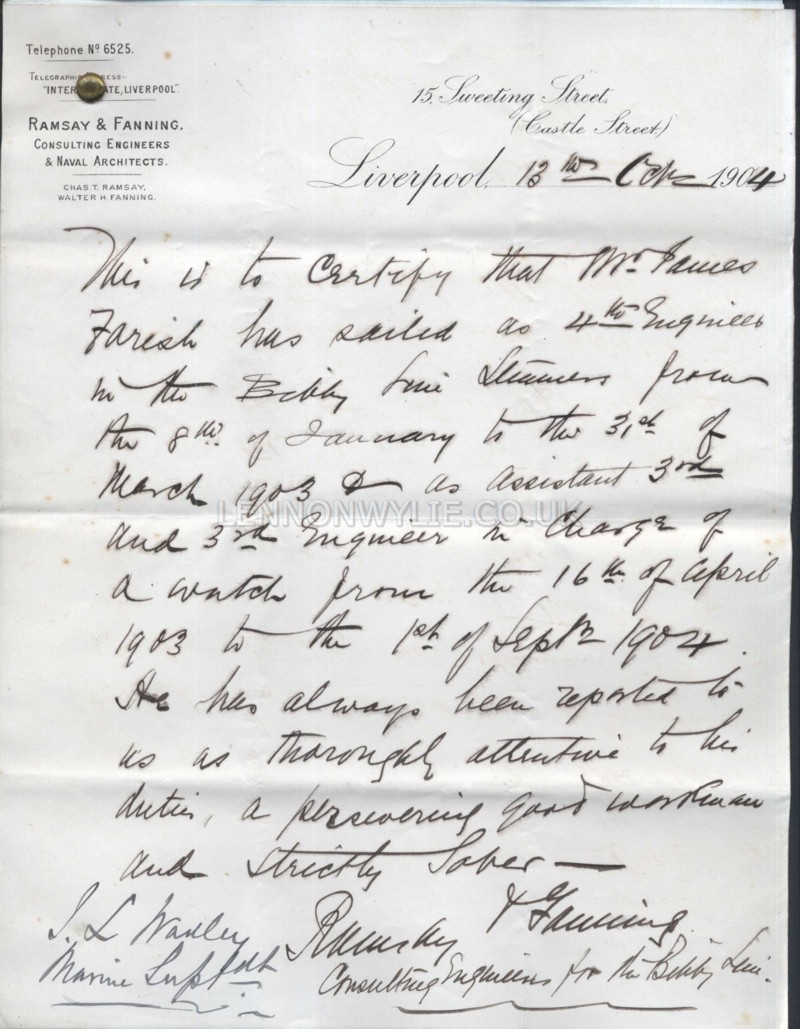 Telephone No 6525.
Telegraphic Address:-
"INTER ATE, LIVERPOOL".
RAMSAY & FANNING,
CONSULTING ENGINEERS
& NAVAL ARCHITECTS.
CHAS. T. RAMSAY,
WALTER H. FANNING.
15, Sweeting Street,
(Castle Street.)
Liverpool, 13th Octr 1904
This is to Certify that Mr. James
Farish has sailed as 4th Engineer
in the Bibby Line Steamers from
the 8th of January to the 31st of
March 1903 & as assistant 3rd
LENNONWYLIE.CO.UK
and 3rd Engineer in Charge of
a watch from the 16th of April
1903 to the 1st of Septr 1904.
He has always been reported to
us as thoroughly attentive to his
duties, a persevering good workman
and Strictly Sober —
Ramsay & Fanning
Consulting Engineers for the Bibby Line.
J. L.
Marine Suptdt